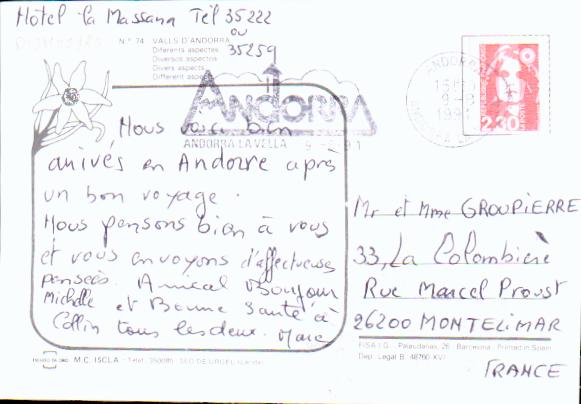 Hotel la Massana Tel 35222
ou
35259
N.º 74 VALLS D'ANDORRA
Diferents aspectes
Diversos aspectos
Divers aspects
Different aspects
ANDORRA
ANDORRA LA VELLA
2,30
Nous voici bien
arrivés en Andorre après
un bon voyage.
Nous pensons bien à vous
et vous envoyons d'affectueuses
pensées. Amical Bonjour
Michelle et Bonne Santé à
Collin tous les deux. Marc
Mr et Mme GROUPIERRE
33, La Colombière
Rue Marcel Proust
26200 MONTELIMAR
FRANCE
M.C. ISCLA - Telèfon
SEO DE URGEL
FISA I.G. - Palaudarias, 26 - Barcelona - Printed in Spain
Dep. Legal B. 48760-XVI